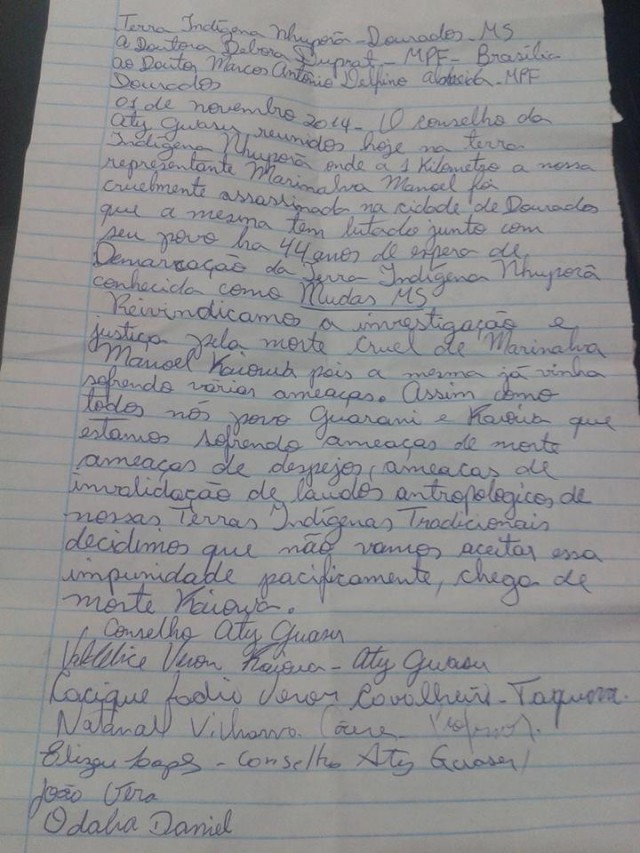 Terra Indígena Nhuporã - Dourados - MS
a Doutora Debora Duprat - MPF - Brasília
ao Doutor Marcos Antônio Delfino - MPF
Dourados
01 de novembro 2014 - O conselho da
Aty Guasu reunidos hoje na terra
Indígena Nhuporã onde a 1 Kilometro a nossa
representante Marinalva Manoel foi
cruelmente assassinada na cidade de Dourados
que a mesma tem lutado junto com
seu povo ha 44 anos de espera de
Demarcação da Terra Indígena Nhuporã
conhecida como Mudas MS
Reivindicamos a investigação e
justiça pela morte cruel de Marinalva
Manoel Kaiowa pois a mesma já vinha
sofrendo várias ameaças. Assim como
todos nós povo Guarani e Kaiowa que
estamos sofrendo ameaças de morte
ameaças de despejos, ameacas de
invalidação de laudos antropologicos de
nossas Terras Indígenas Tradicionais
decidimos que não vamos aceitar essa
impunidade pacificamente, chega de
morte Kaiowa.
Conselho Aty Guasu
Valdelice Veron Kaiowa - Aty Guasu
Cacique Ladio Veron Cavalheiro - Taquara
Natanael Vilharva
Elizeu Lopes - Conselho Aty Guasu
João Vera
Odalia Daniel